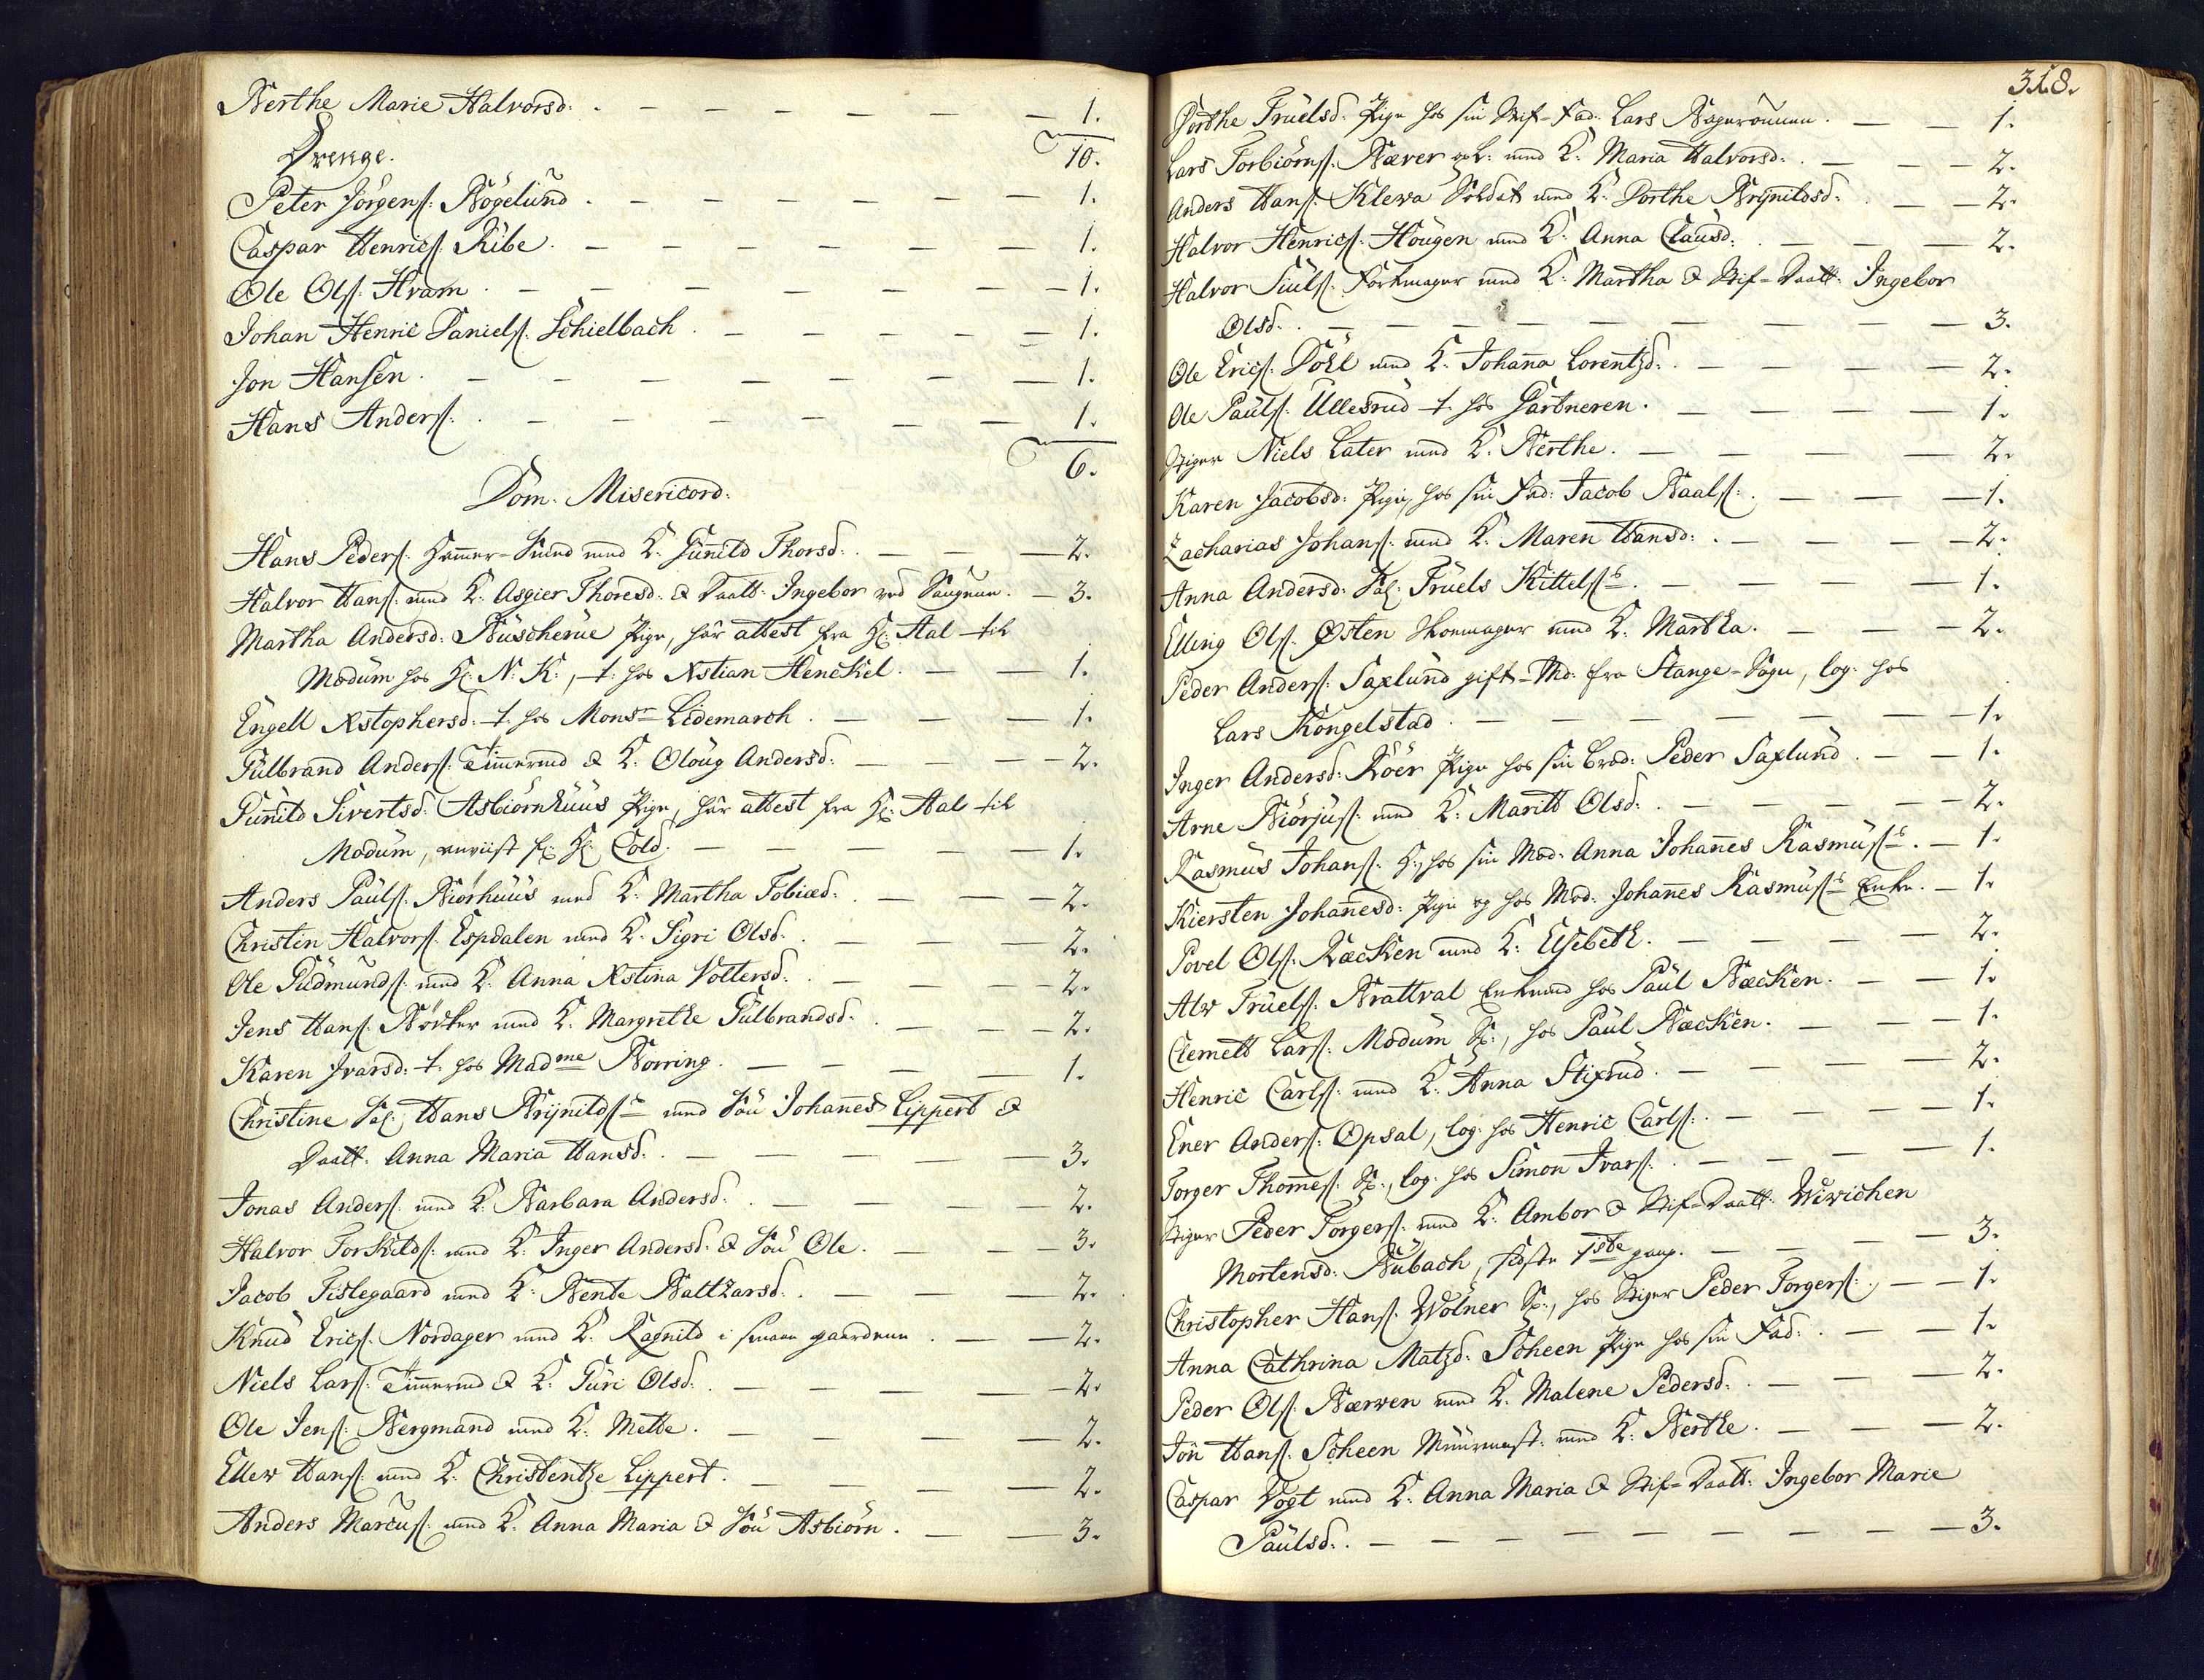 Berthe Marie Halvorsd: . — — — — — — 1.
10.
Drenge.
Peter Jörgens: Bögelünd . — — — — — — 1.
Caspar Henrics: Ribe . — — — — — — 1.
Ole Ols: Hvam . — — — — — — 1.
Johan Henric Daniels: Schielbach . — — — — — 1.
Jon Hansen . — — — — — — — 1.
Hans Anders: . — — — — — — 1.
6.
Dom. Misericord:
Hans Peders: Hamer-Smed med K: Günild Thorsd: . — — — 2.
Halvor Hans: med K: Asgier Thoresd: & Daatt: Ingebor ved Saugene . — 3.
Martha Andersd: Büscherüe Pige, har attest fra H: Aal til
Modum hos H: N: K:, t: hos Xstian Henckel . — — 1.
Engell Xstophersd: t: hos Monsr Lidemarch . — — — 1.
Gülbrand Anders: Timermd & K: Oloug Andersd: — — — 2.
Günild Sivertsd: Asbiörnhüüs Pige, har attest fra H: Aal til
Modum, H: Cold . — — — — — 1.
Anders Pauls: Biörhüüs med K: Martha Tobiæd: . — — — 2.
Christen Halvors: Espdalen med K: Sigri Olsd: . — — — 2.
Ole Gudmunds: med K: Anna Xstina Voltersd: . — — — 2.
Jens Hans: Böcker med K: Margrethe Gülbrandsd: . — — — 2.
Karen Ivarsd: t: hos Madme Borring . — — — — 1.
Christine Sal: Hans Brÿnilds: med Sön Johannes Lippert &
Daatt: Anna Maria Hansd: . — — — — — 3.
Jonas Anders: med K: Barbara Andersd: . — — — — 2.
Halvor Torkilds: med K: Inger Andersd: & Sön Ole . — — — 3.
Jacob Tislegaard med K: Bente Baltzarsd: . — — — — 2.
Knud Erics: Nordager med K: Ragnild i gaardene . — — 2.
Niels Lars: Timermd & K: Guri Olsd: . — — — — — 2.
Ole Jens: Bergmand med K: Mette . — — — — — 2.
Ellew Hans: med K: Christentze Lippert . — — — — 2.
Anders Marcus: med K: Anna Maria & Sön Asbiörn . — — 3.
318.
Dorthe Truelsd: Pige hos sin Stif-Fad: Lars . — — 1.
Lars Torbiörns: Bæver med K: Maria Halvorsd: . — 2.
Anders Hans: Klewa Soldat med K: Dorthe Brÿnildsd: . — — 2.
Halvor Henrics: Hougen med K: Anna Clausd: . — — — 2.
Halvor Siuls: med K: Martha & Stif-Daatt: Ingebor
Olsd: . — — — — — — — — — 3.
Ole Erics: Döhl med K: Johanna Lorentzd: . — — — — 2.
Ole Pauls: Ullesrud t: hos Gartneren . — — — — 1.
Stiger Niels Later med K: Berthe . — — — — 2.
Karen Jacobsd: Pige, hos sin Fad: Jacob Baals: . — — — 1.
Zacharias Johans: med K: Maren Hansd: . — — — 2.
Anna Andersd: Sal: Truels Kittels: . — — — — 1.
Elling Ols: Østen Skomager med K: Martha . — — — 2.
Peder Anders: Saxlund gift-Md. fra Stange-Sogn, log: hos
Lars Kongelstad . — — — — — — — 1.
Inger Andersd: Röer Pige hos sin brod: Peder Saxlund . — — 1.
Arne Biörjus: med K: Maritt Olsd: . — — — — 2.
Rasmus Johans: K:, hos sin Mod: Anna Johannes Rasmus: . — 1.
Kiersten Johannesd: Pige og hos Mod: Johannes Rasmus: Enke . — 1.
Povel Ols: Bæcken med K: Elsebeth . — — — — 2.
Alw Truels: Brattval Enkemd hos Paul Bæcken . — — 1.
Clemett Lars: Modum S:, hos Paul Bæcken . — — — 1.
Henric Carls: med K: Anna Stixrud . — — — — 2.
Ener Anders: Opsal, log: hos Henric Carls: . — — — — 1.
Torger Thommes: S:, log: hos Simon Ivars: . — — — — 1.
Stiger Peder Torgers: med K: Ambor & Stif-Daatt: Wiwichen
Mortensd: Bubach, sidste 1ste gang . — — — — 3.
Christopher Hans: Wolner S:, hos Stiger Peder Torgers: . — — 1.
Anna Cathrina Matzd: Scheen Pige hos sin Fad: . — — 1.
Peder Ols: Bærwen med K: Malene Pedersd: . — — — 2.
Jon Hans: Scheen Muurmest: med K: Berthe . — — — 2.
Caspar Vogt med K: Anna Maria & Stif-Daatt: Ingebor Marie
Paulsd: . — — — — — — — — 3.